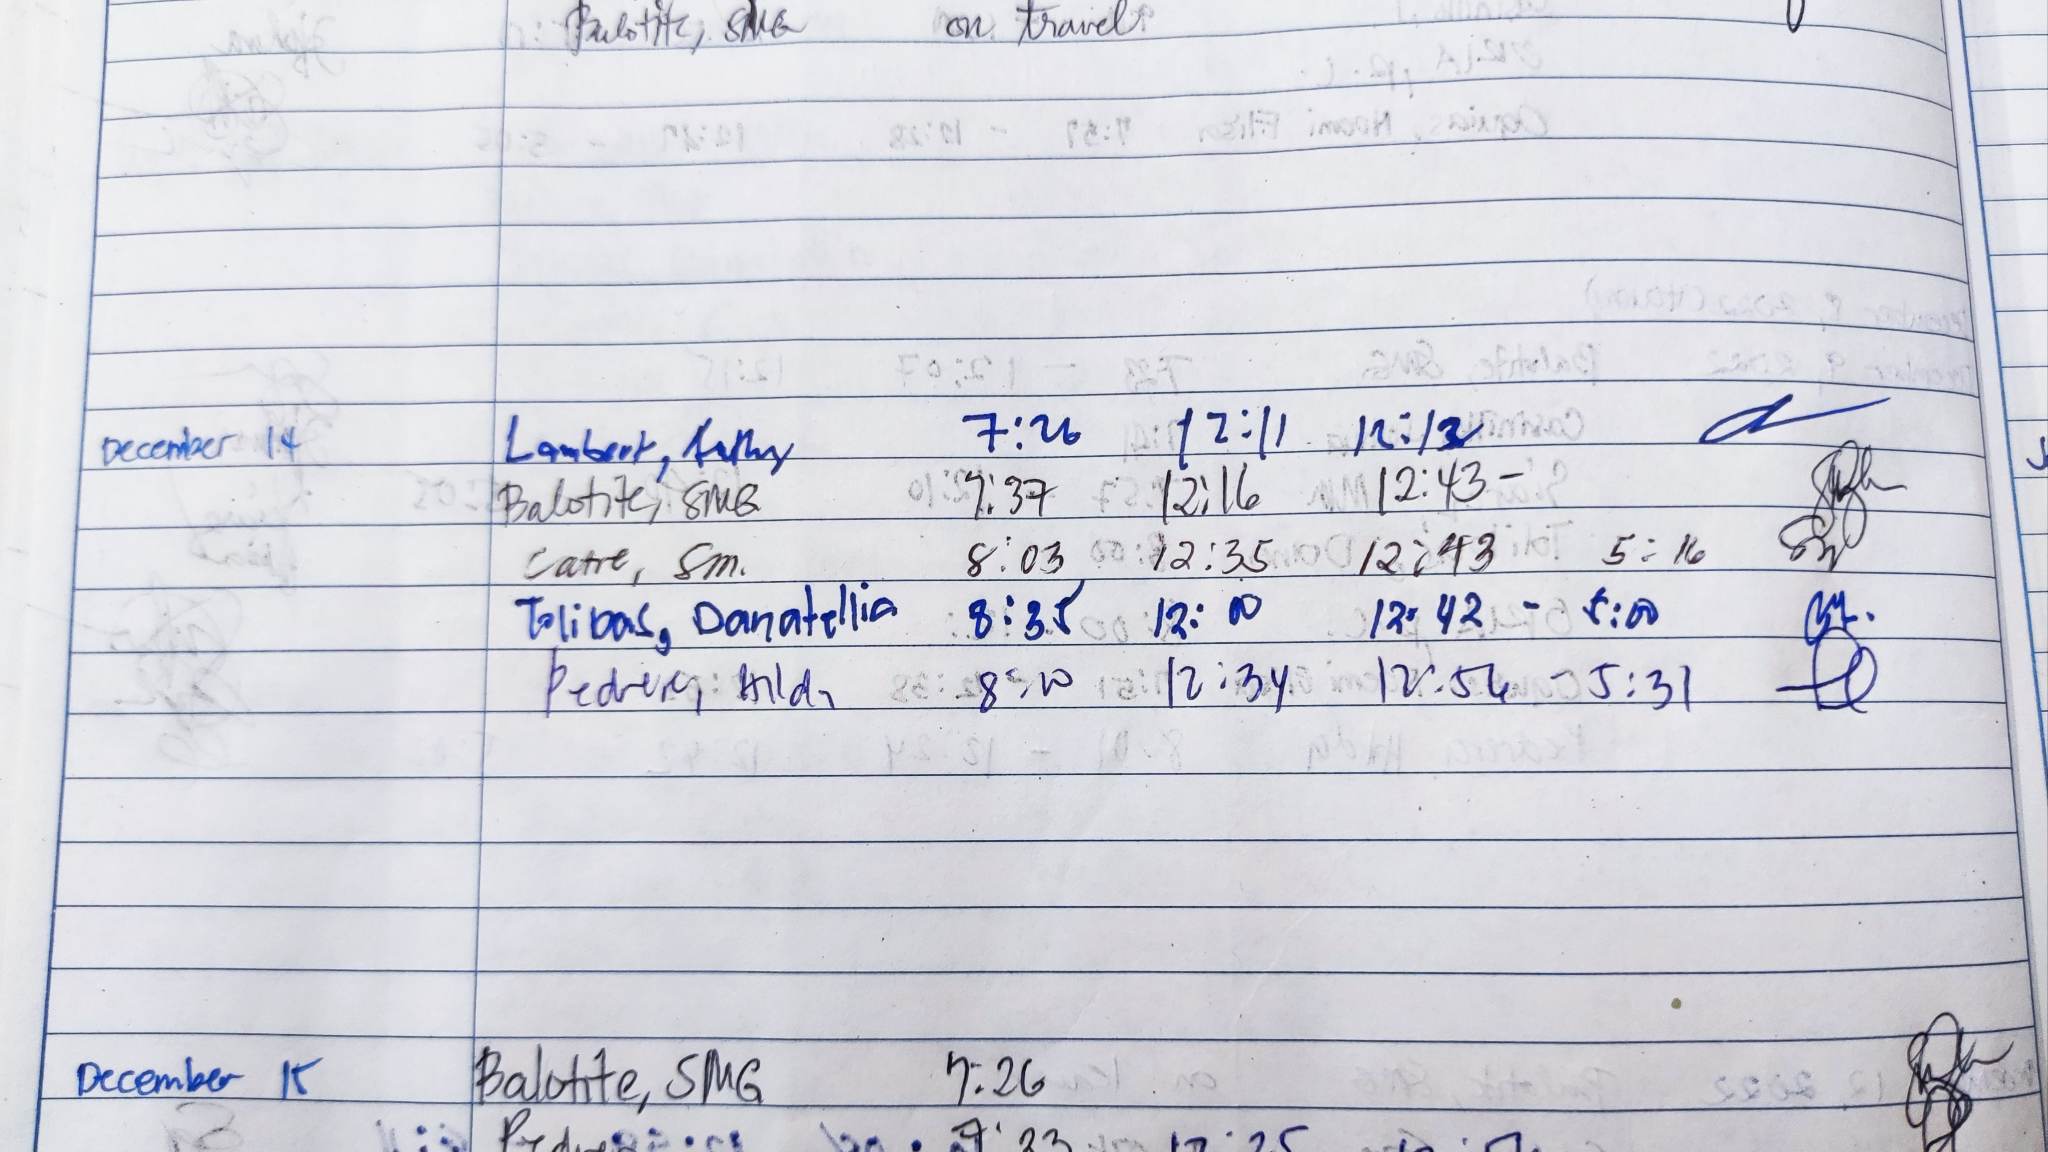 Balotite, SMG on travel
December 14 Lambert, 7:26 12:11 12:13
Balotite, SMG 7:37 12:16 12:43 -
Catre, Sm. 8:03 12:35 12:43 5:16
Tolibas, Danatellia 8:35 12:00 12:42 - 5:00
Pedrera, Hilda 12:34 12:56 - 5:31
December 15 Balotite, SMG 7:26
7:33 12:25